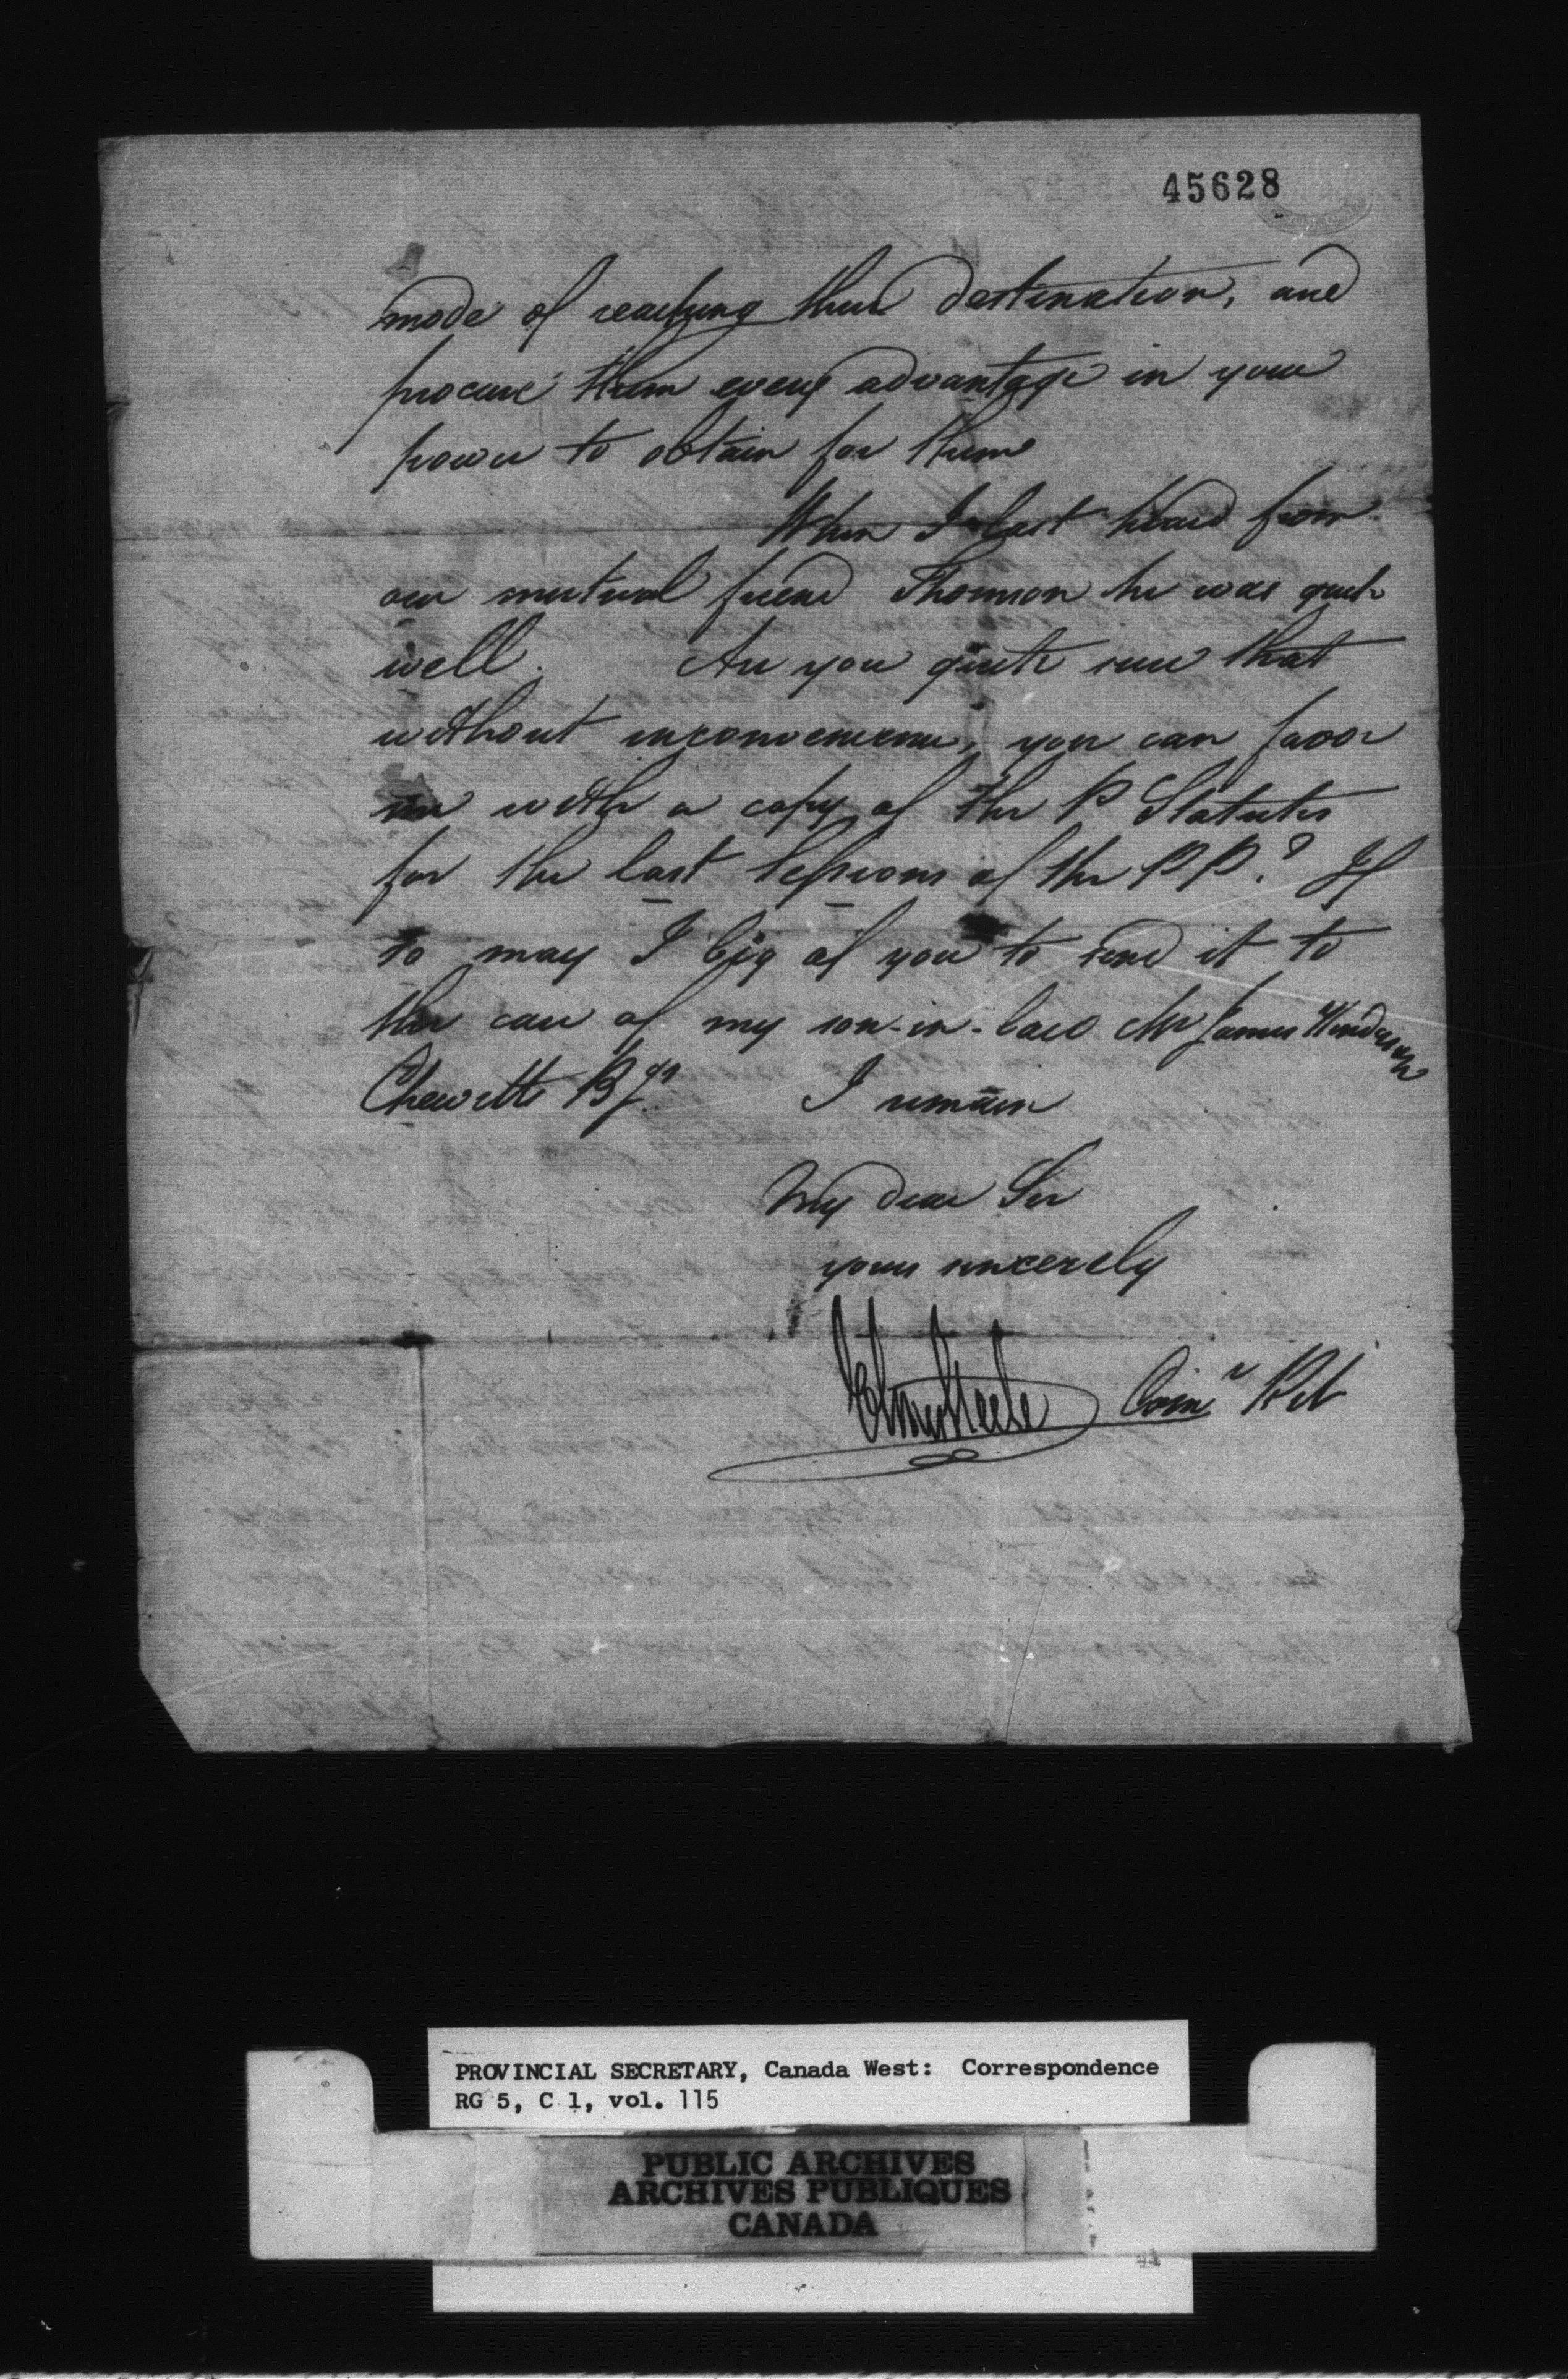 45628
mode of reaching their destination, and
procure them every advantage in your
power to obtain for them
When I last heard from
our mutual friend Thomson he was quite
well. Are you quite sure that
without inconvenience, you can favor
me with a copy of the P Statutes
for the last Sessions of the P P? If
so may I beg of you to send it to
the care of my son-in-law Mr James Henderson
Chewetts Bgs I remain
My dear Sir
yours sincerely
Elmes Steele Com r Rl
PROVINCIAL SECRETARY, Canada West: Correspondence
RG 5, C 1, vol. 115
PUBLIC ARCHIVES
ARCHIVES PUBLIQUES
CANADA